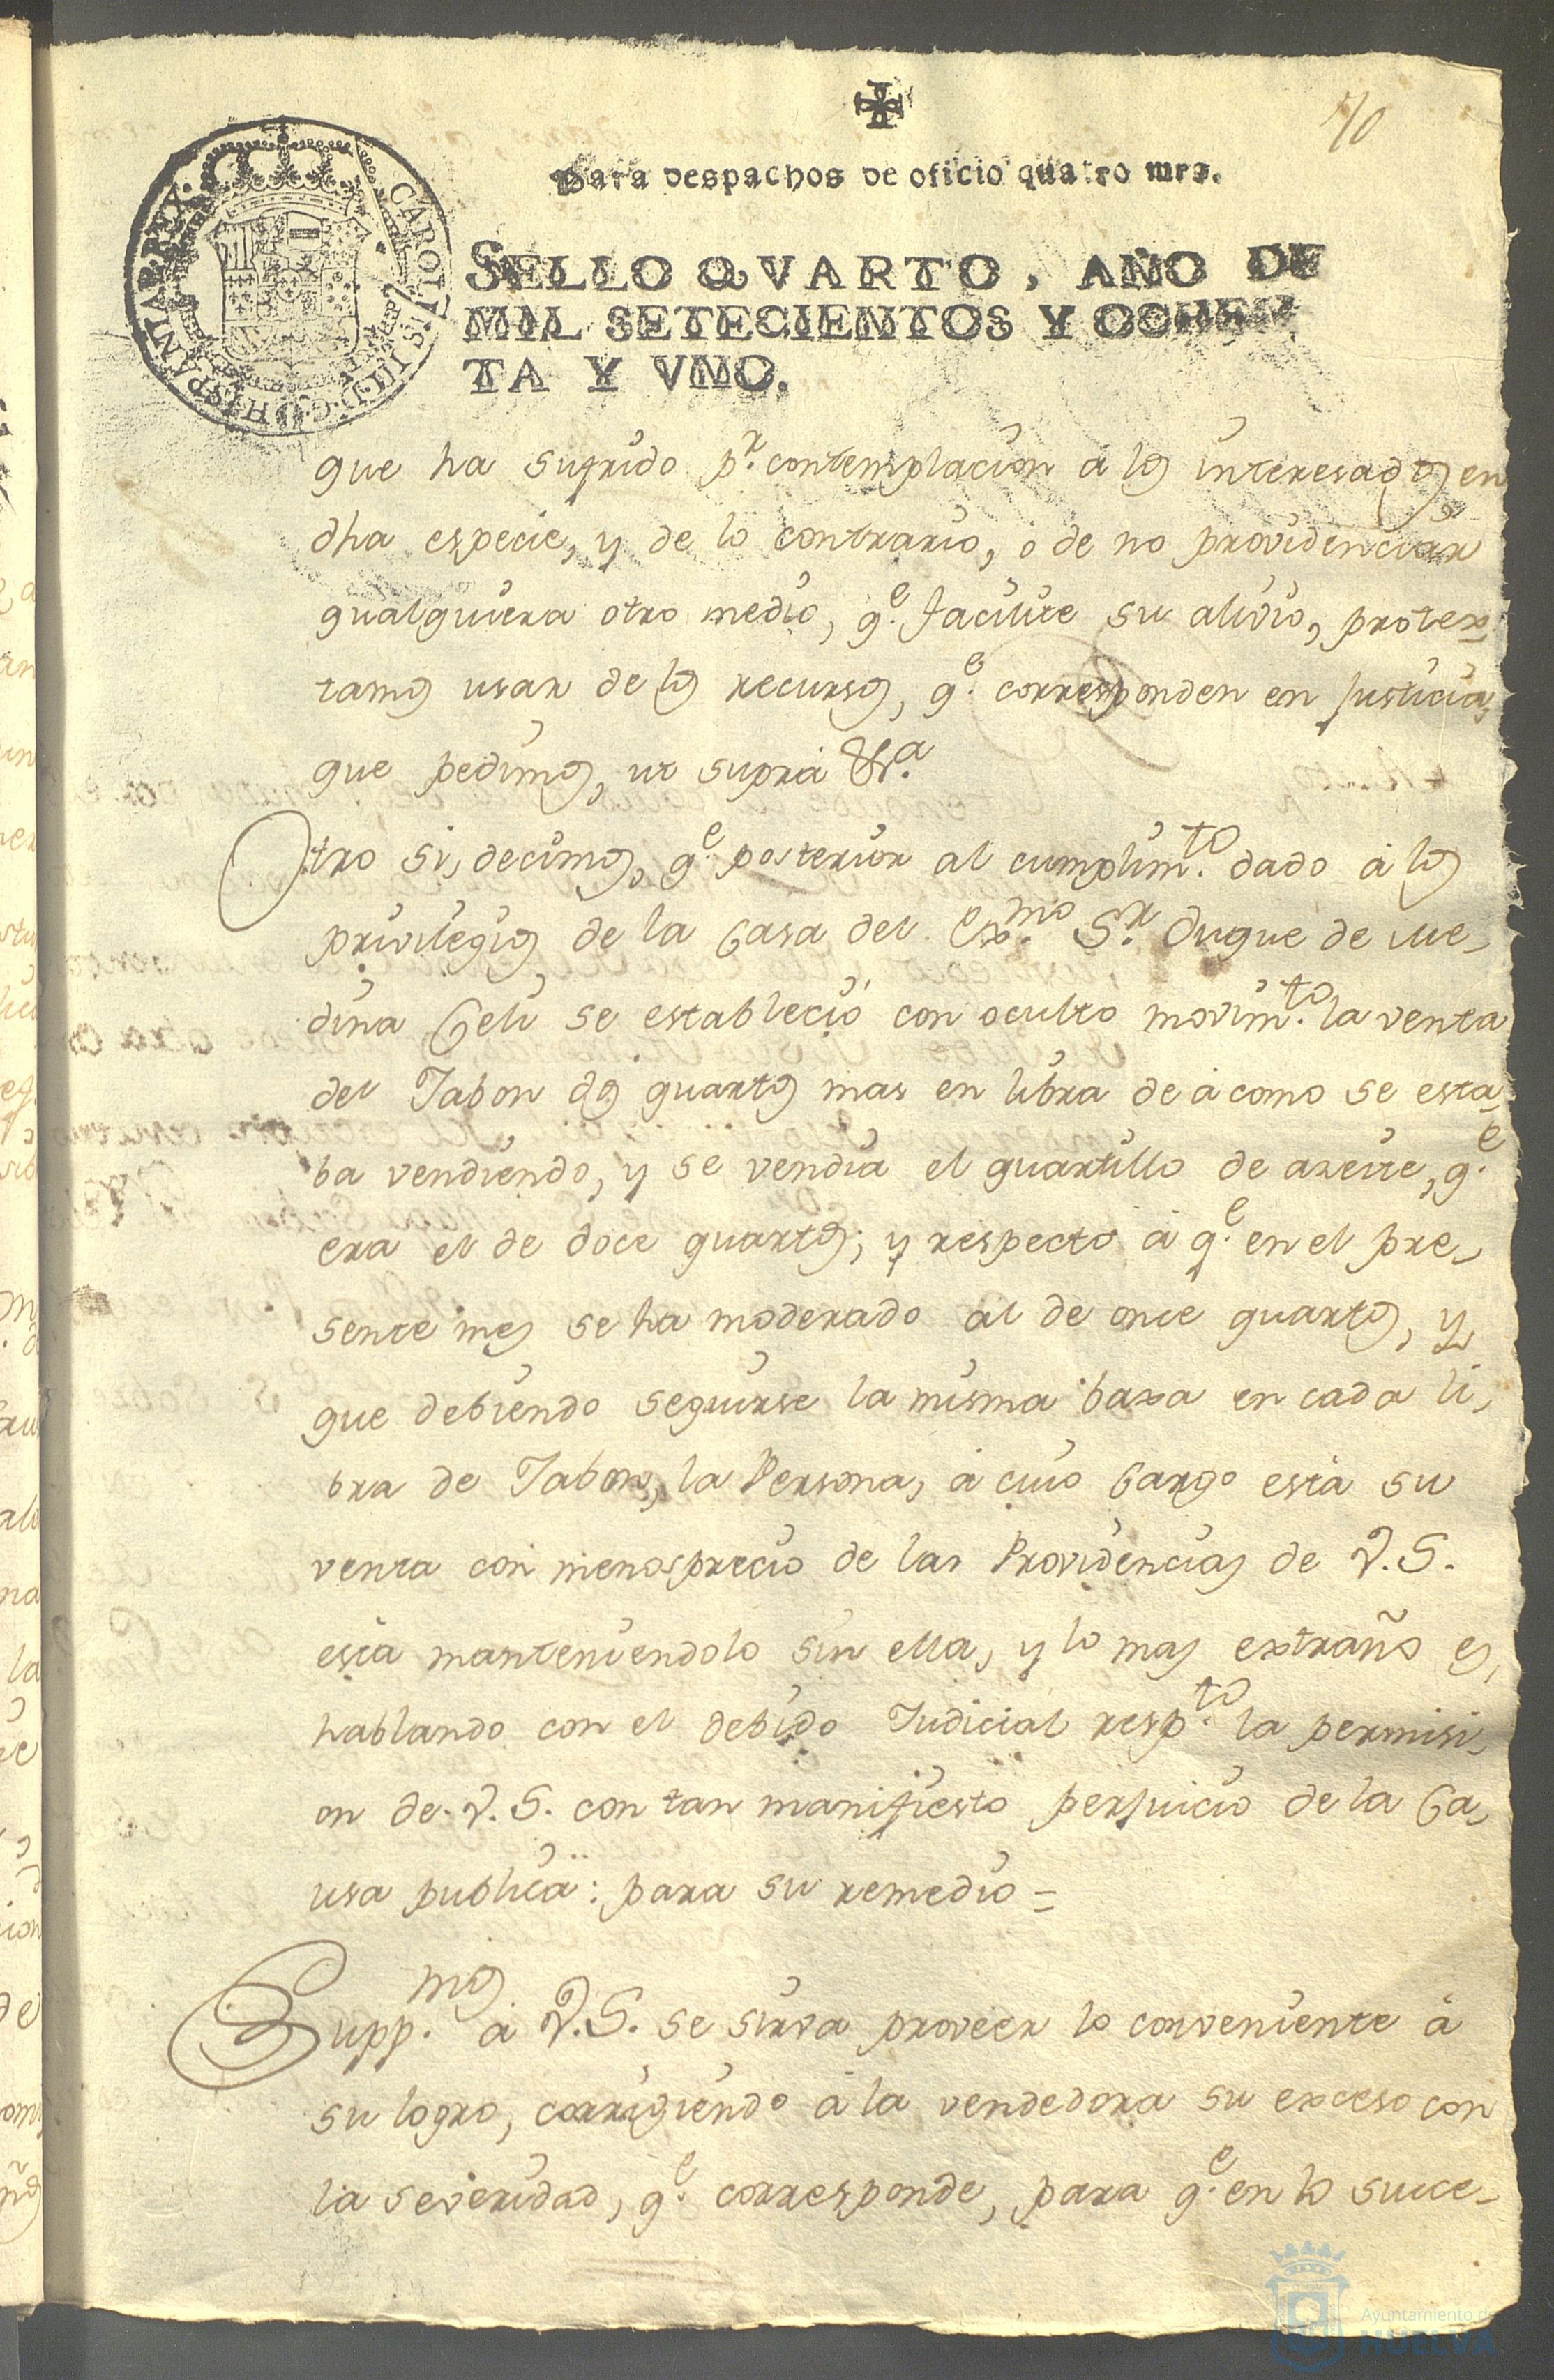 70
Para despachos de oficio quatro mrs.
SELLO QVARTO, AÑO DE
MIL SETECIENTOS Y OCHEN
TA Y VNO.
CAROLVS III D. G. HISPANIAR. REX
que ha sufrido p.r contemplacion á los interesados en
dha especie, y de lo contrario, ó de no providenciar
qualquiera otro medio, q.e facilite su alivio, protex-
tamos usar de los recursos, q.e corresponden en Justicia,
que pedimos, ut supra &.a
Otro si, decimos, q.e posterior al cumplim.to dado á los
privilegios de la Casa del Ex.mo S.r Duque de Me-
dina Celi se estableció con oculto movim.to la venta
del Jabon dos quartos mas en libra de á como se esta-
ba vendiendo, y se vendia el quartillo de azeite, q.e
era el de doce quartos; y respecto á q.e en el pre-
sente mes se ha moderado al de once quartos, y
que debiendo seguirse la misma baxa en cada li-
bra de Jabon, la Persona, á cuio cargo está su
venta con menosprecio de las Providencias de V.S.
está manteniendolo sin ella, y lo mas extraño es,
hablando con el debido Judicial resp.to la permisi-
on de V.S. con tan manifiesto perjuicio de la Ca-
usa publica: para su remedio =
Supp.mos á V.S. se sirva proveer lo conveniente á
su logro, corrigiendo á la vendedora su exceso con
la severidad, q.e corresponde, para q.e en lo succe-
Ayuntamiento de
HUELVA